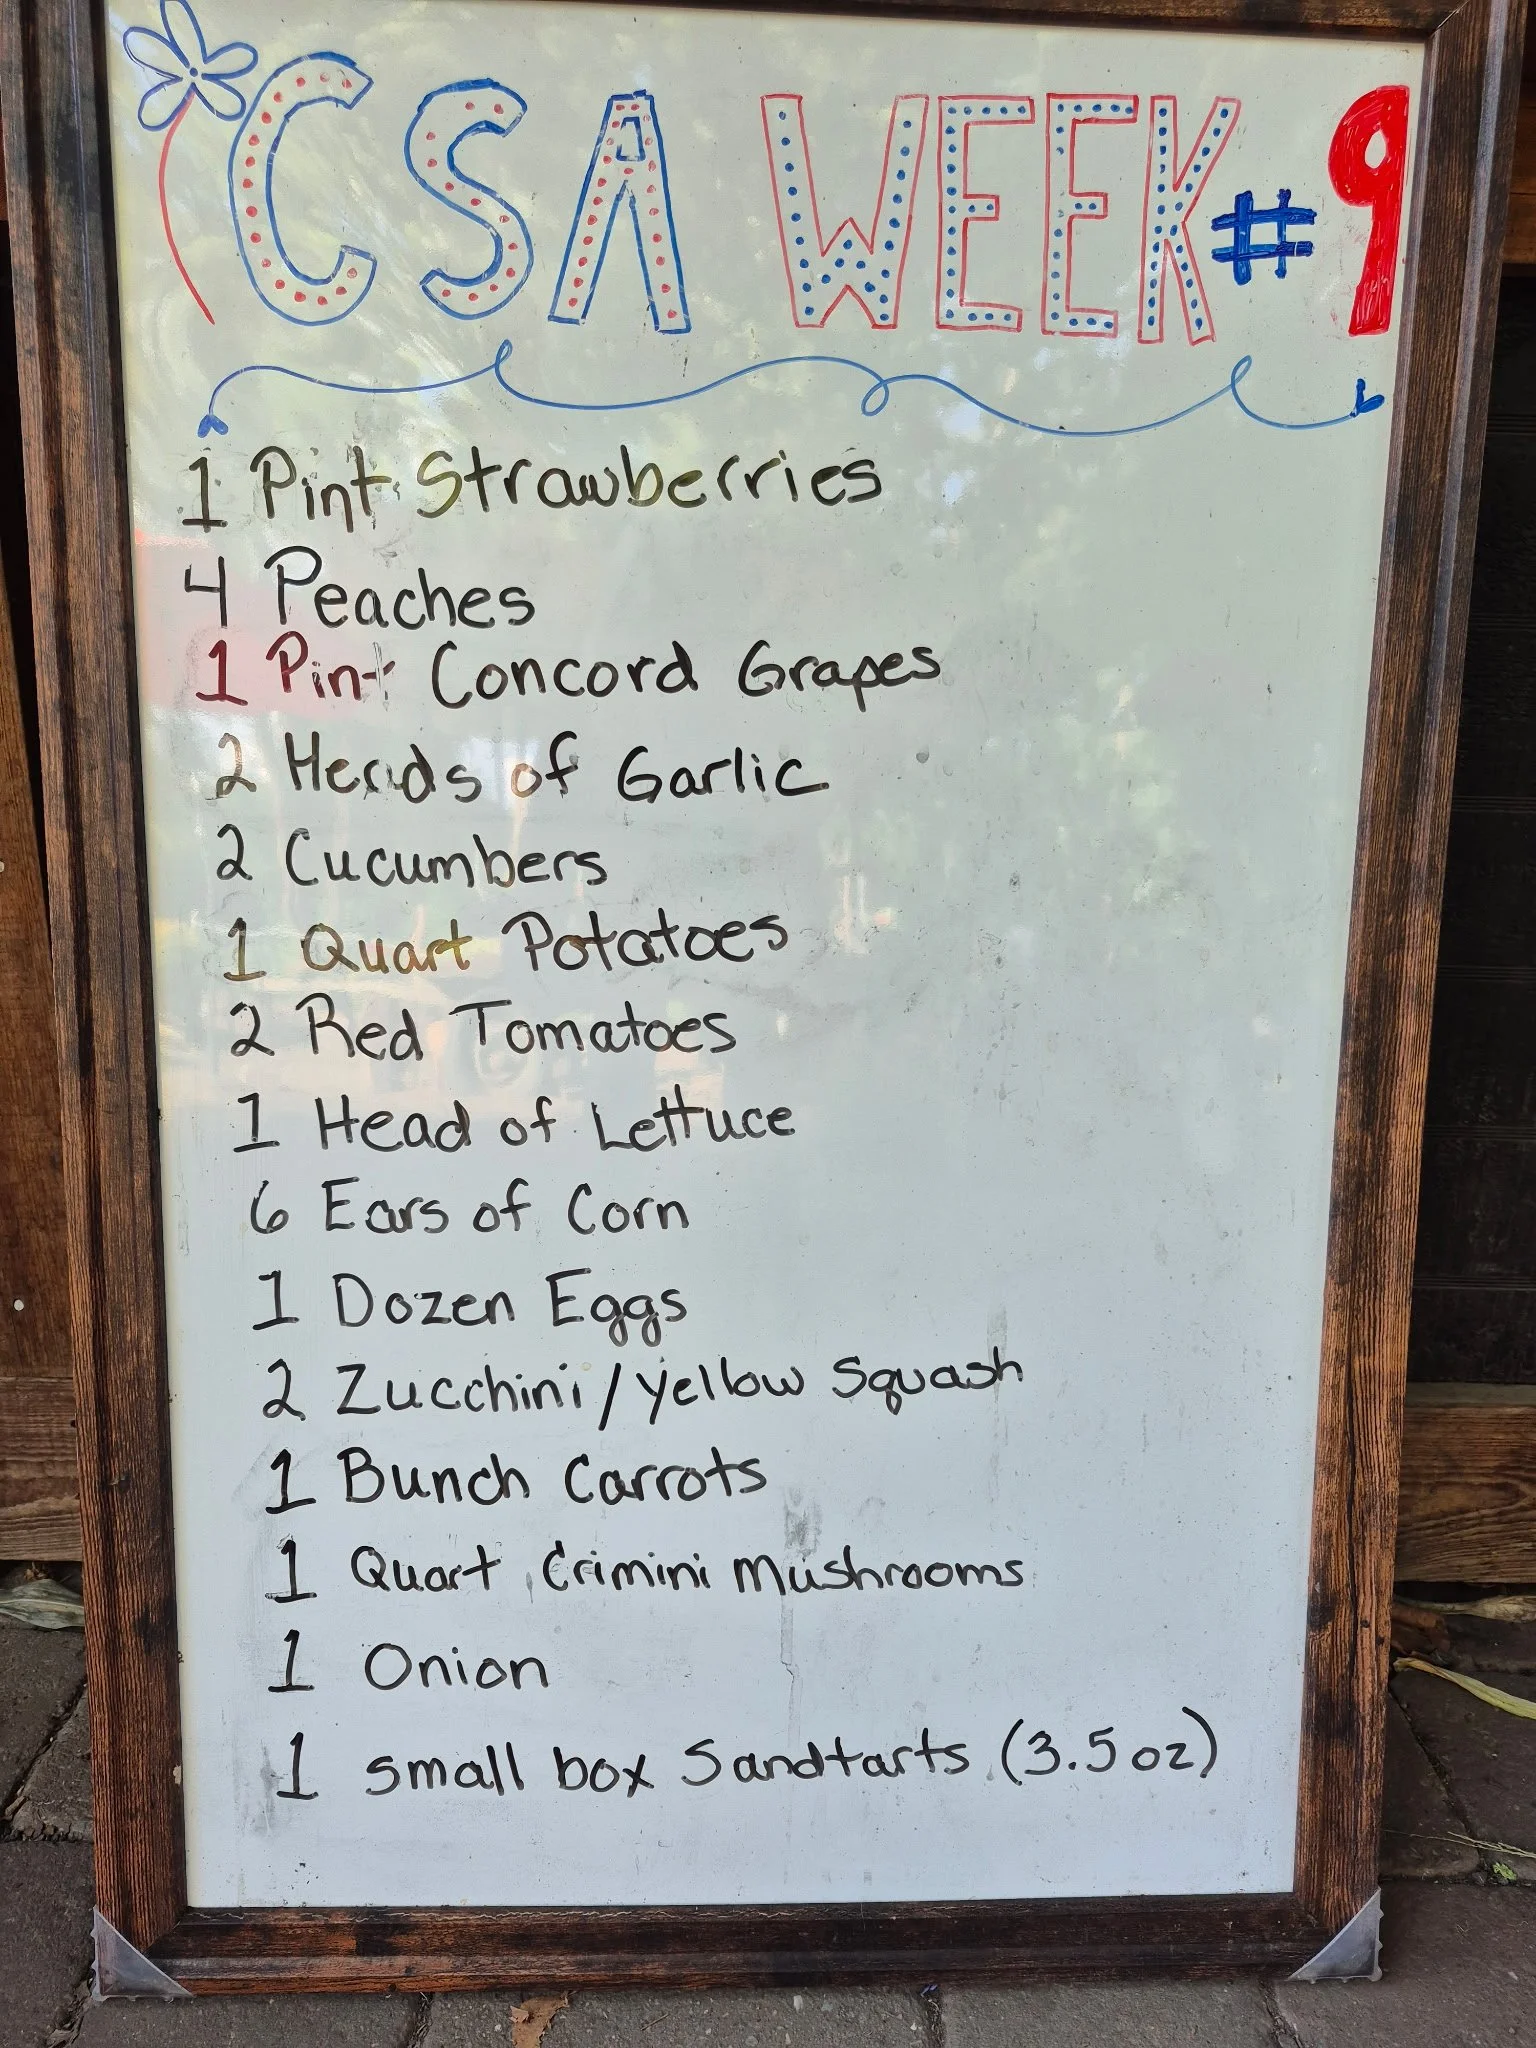 CSA WEEK #9
1 Pint Strawberries
4 Peaches
1 Pint Concord Grapes
2 Heads of Garlic
2 Cucumbers
1 Quart Potatoes
2 Red Tomatoes
1 Head of Lettuce
6 Ears of Corn
1 Dozen Eggs
2 Zucchini/Yellow Squash
1 Bunch Carrots
1 Quart Crimini Mushrooms
1 Onion
1 small box Sandtarts (3.5 oz)